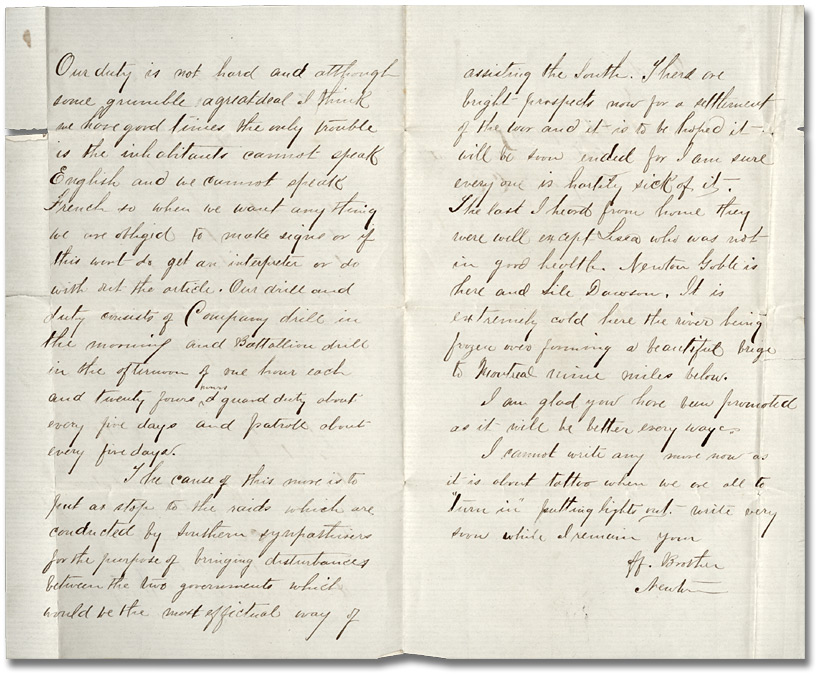 Our duty is not hard and although
some grumble a great deal I think
we have good times the only trouble
is the inhabitants cannot speak
English and we cannot speak
French so when we want any thing
we are obligid to make signs or if
this wont do get an interpeter or do
with out the article. Our drill and
duty consists of Company drill in
the morning and Battallion drill
in the afternoon of one hour each
and twenty fours hours guard duty about
every five days and patroll about
every five days.
The cause of this move is to
put as stop to the raids which are
conducted by Southern sympathisers
for the purpose of bringing disturbances
between the two governments which
would be the most effectual way of
assisting the South. There are
bright prospects now for a settlement
of the war and it is to be hoped it
will be soon ended for I am sure
every one is hartily sick of it.
The last I heard from home they
were well except who was not
in good health. Newton Goble is
here and Sile Dawson. It is
extremely cold here the river being
frozen over forming a beautiful brige
to Montreal nine miles below.
I am glad you have been promoted
as it will be better every waye.
I cannot write any more now as
it is about tattoo when we are all to
"turn in" putting lights out write very
soon while I remain your
Af. Brother
Newton